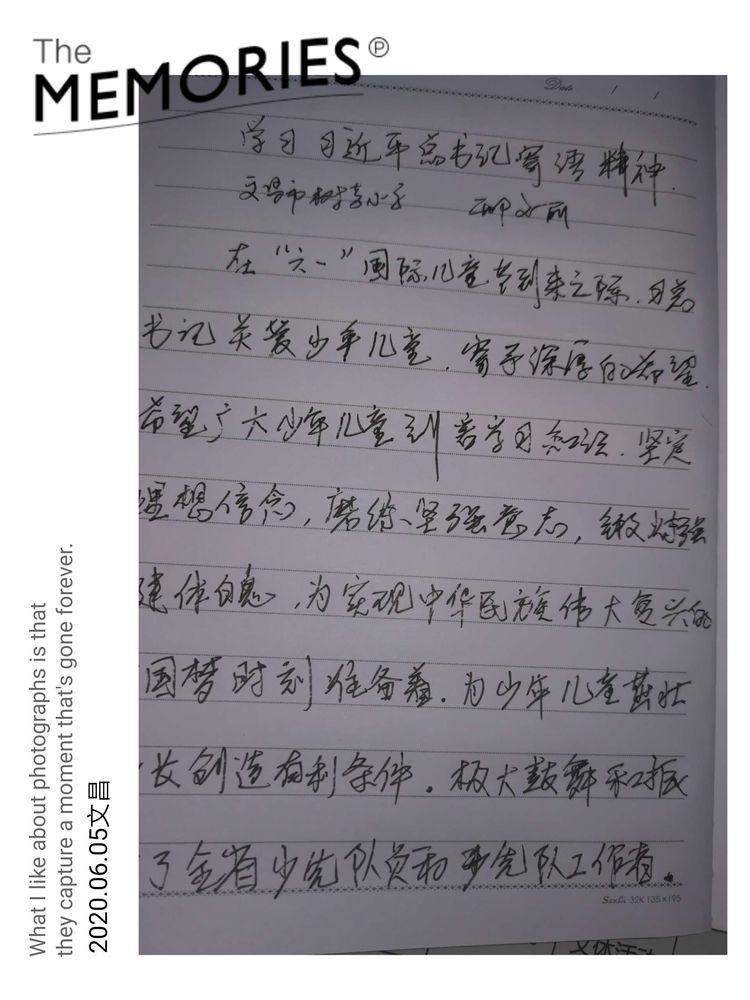 The
MEMORIES Ⓟ
Date / /
学习习近平总书记寄语精神
文昌市树芳小学 文丽
在“六一”国际儿童节到来之际，习总
书记关爱少年儿童，寄予深厚的希望，
希望广大少年儿童刻苦学习知识，坚定
理想信念，磨练坚强意志，锻炼强
健体魄，为实现中华民族伟大复兴的
国梦时刻准备着。为少年儿童茁壮
长创造有利条件。极大鼓舞和振
了全省少先队员和少先队工作者。
SenLi 32K 135×195
文体活动
What I like about photographs is that
they capture a moment that's gone forever.
2020.06.05文昌